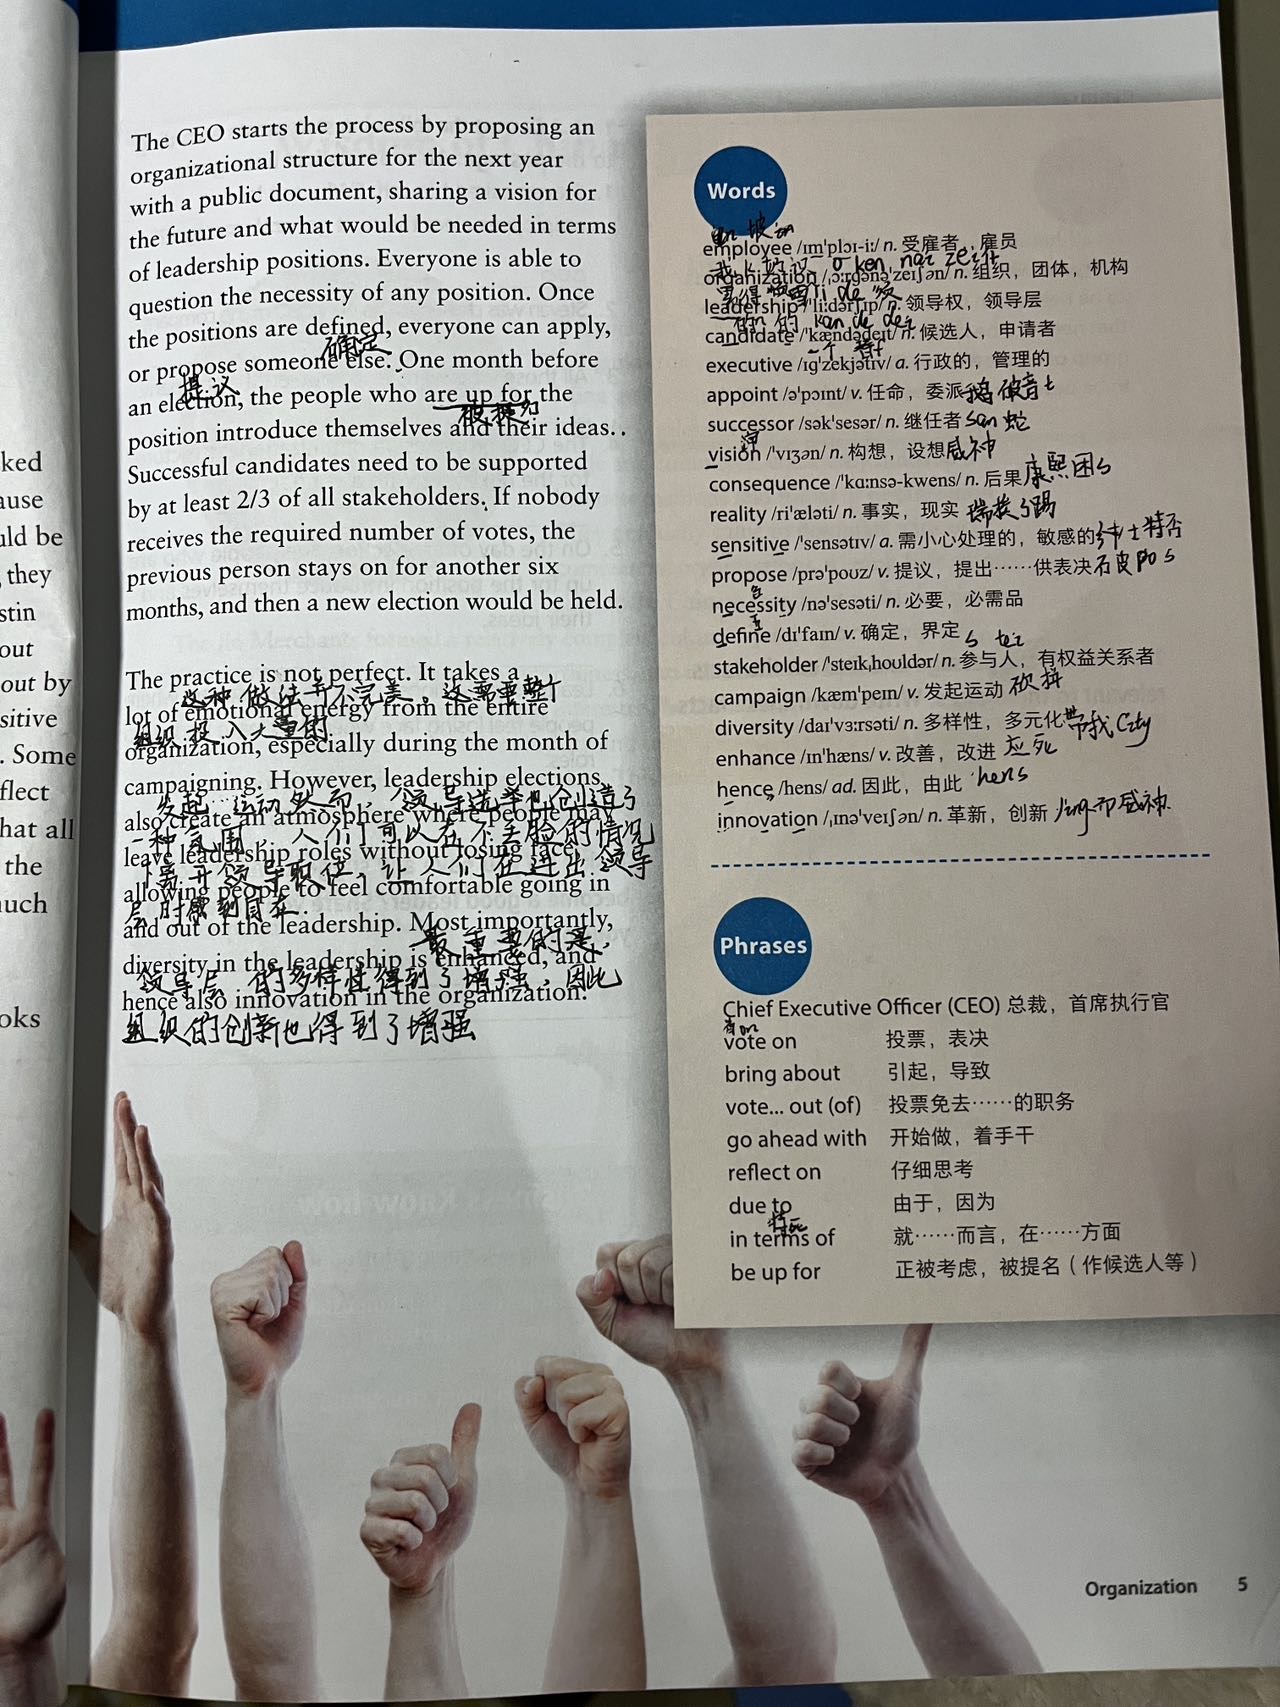 ked
ause
uld be
, they
stin
out
out by
sitive
. Some
flect
hat all
the
uch
oks
The CEO starts the process by proposing an
organizational structure for the next year
with a public document, sharing a vision for
the future and what would be needed in terms
of leadership positions. Everyone is able to
question the necessity of any position. Once
the positions are defined, everyone can apply,
确定
or propose someone else. One month before
提议
an election, the people who are up for the
被提名
position introduce themselves and their ideas.
Successful candidates need to be supported
by at least 2/3 of all stakeholders. If nobody
receives the required number of votes, the
previous person stays on for another six
months, and then a new election would be held.
The practice is not perfect. It takes a
这种做法并不完美，这需要整个
lot of emotional energy from the entire
组织投入大量的
organization, especially during the month of
campaigning. However, leadership elections
发起 运动 然而，领导选举也创造了
also create an atmosphere where people may
一种氛围，人们可以在不丢脸的情况
leave leadership roles without losing face,
离开领导职位，让人们在进出领导
allowing people to feel comfortable going in
层时感到自在.
and out of the leadership. Most importantly,
最重要的是，
diversity in the leadership is enhanced, and
领导层的多样性得到了增强，因此
hence also innovation in the organization.
组织的创新也得到了增强
Words
employee /ɪmˈplɔɪ-iː/ n. 受雇者，雇员
organization /ˌɔːrgənəˈzeɪʃən/ n. 组织，团体，机构
leadership /ˈliːdərʃɪp/ n. 领导权，领导层
candidate /ˈkændədeɪt/ n. 候选人，申请者
executive /ɪgˈzekjətɪv/ a. 行政的，管理的
appoint /əˈpɔɪnt/ v. 任命，委派
successor /səkˈsesər/ n. 继任者 san 蛇
vision /ˈvɪʒən/ n. 构想，设想 威神
consequence /ˈkɑːnsə-kwens/ n. 后果 康熙困s
reality /riˈæləti/ n. 事实，现实
sensitive /ˈsensətɪv/ a. 需小心处理的，敏感的
propose /prəˈpoʊz/ v. 提议，提出……供表决
necessity /nəˈsesəti/ n. 必要，必需品
define /dɪˈfaɪn/ v. 确定，界定
stakeholder /ˈsteɪkˌhoʊldər/ n. 参与人，有权益关系者
campaign /kæmˈpeɪn/ v. 发起运动 砍拼
diversity /daɪˈvɜːrsəti/ n. 多样性，多元化 带我City
enhance /ɪnˈhæns/ v. 改善，改进 应死
hence /hens/ ad. 因此，由此 hens
innovation /ˌɪnəˈveɪʃən/ n. 革新，创新
Phrases
Chief Executive Officer (CEO) 总裁，首席执行官
vote on 投票，表决
bring about 引起，导致
vote... out (of) 投票免去……的职务
go ahead with 开始做，着手干
reflect on 仔细思考
due to 由于，因为
in terms of 就……而言，在……方面
be up for 正被考虑，被提名（作候选人等）
Organization 5